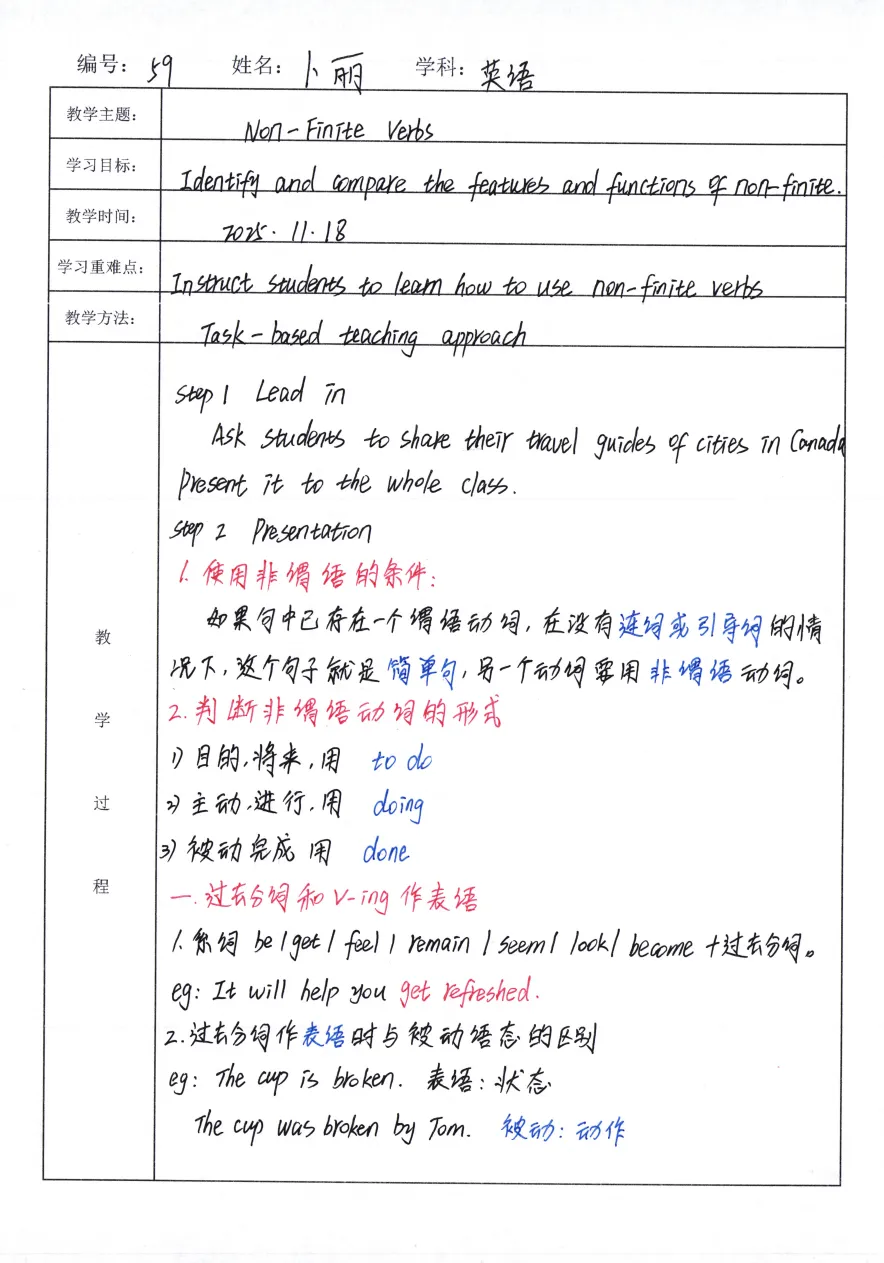 编号：59 姓名：卜丽 学科：英语
教学主题： Non-Finite Verbs
学习目标： Identify and compare the features and functions of non-finite.
教学时间： 2025.11.18
学习重难点： Instruct students to learn how to use non-finite verbs
教学方法： Task-based teaching approach
教学过程
Step 1 Lead in
Ask students to share their travel guides of cities in Canada
Present it to the whole class.
Step 2 Presentation
1. 使用非谓语的条件：
如果句中已存在一个谓语动词，在没有连词或引导词的情
况下，这个句子就是简单句，另一个动词要用非谓语动词。
2. 判断非谓语动词的形式
1) 目的，将来，用 to do
2) 主动，进行，用 doing
3) 被动完成 用 done
一. 过去分词和 V-ing 作表语
1. 系词 be / get / feel / remain / seem / look / become + 过去分词。
eg: It will help you get refreshed.
2. 过去分词作表语时与被动语态的区别
eg: The cup is broken. 表语：状态
The cup was broken by Tom. 被动：动作